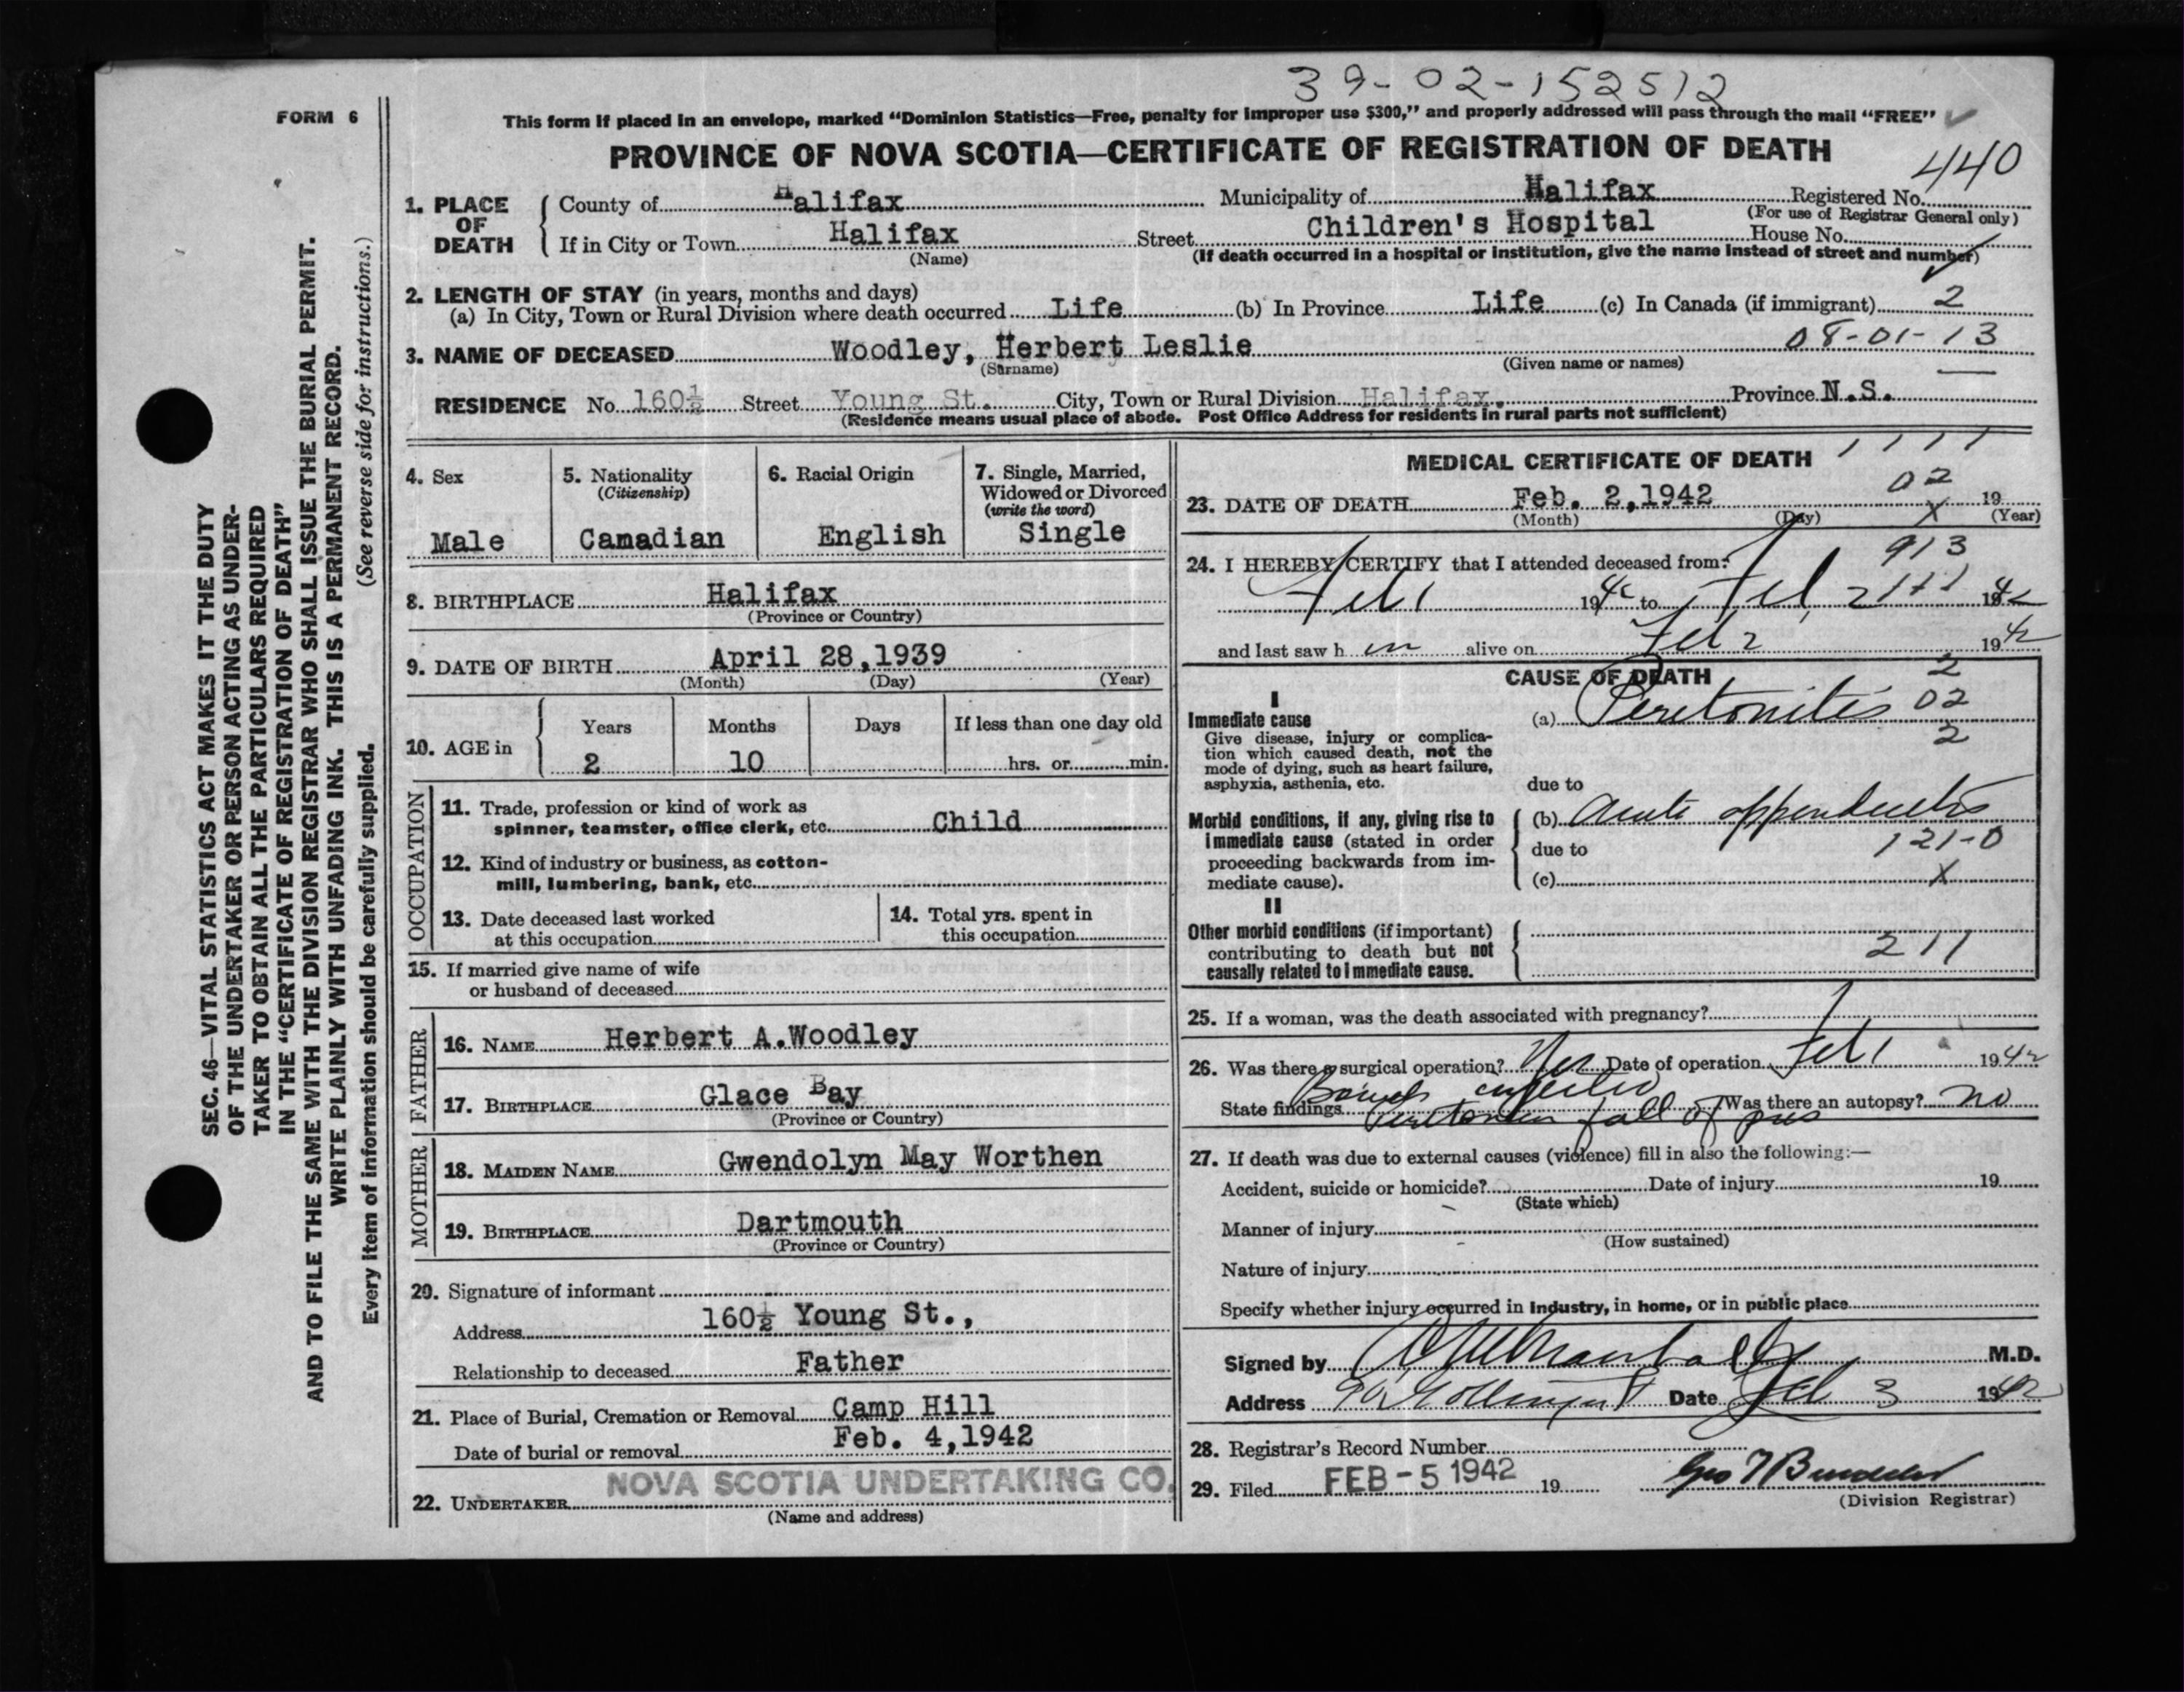 39-02-152512
FORM 6
This form if placed in an envelope, marked "Dominion Statistics—Free, penalty for improper use $300," and properly addressed will pass through the mail "FREE"
PROVINCE OF NOVA SCOTIA—CERTIFICATE OF REGISTRATION OF DEATH
440
1. PLACE OF DEATH
County of Halifax Municipality of Halifax Registered No.
(For use of Registrar General only)
If in City or Town Halifax Street Children's Hospital House No.
(Name) (If death occurred in a hospital or institution, give the name instead of street and number)
2. LENGTH OF STAY (in years, months and days)
(a) In City, Town or Rural Division where death occurred Life (b) In Province Life (c) In Canada (if immigrant) 2
08-01-13
3. NAME OF DECEASED Woodley, Herbert Leslie
(Surname) (Given name or names)
RESIDENCE No. 160½ Street Young St. City, Town or Rural Division Halifax. Province N.S.
(Residence means usual place of abode. Post Office Address for residents in rural parts not sufficient)
4. Sex
Male
5. Nationality
(Citizenship)
Camadian
6. Racial Origin
English
7. Single, Married,
Widowed or Divorced
(write the word)
Single
8. BIRTHPLACE Halifax
(Province or Country)
9. DATE OF BIRTH April 28,1939
(Month) (Day) (Year)
10. AGE in
Years Months Days If less than one day old
2 10 hrs. or min.
OCCUPATION
11. Trade, profession or kind of work as
spinner, teamster, office clerk, etc. Child
12. Kind of industry or business, as cotton-
mill, lumbering, bank, etc.
13. Date deceased last worked
at this occupation
14. Total yrs. spent in
this occupation
15. If married give name of wife
or husband of deceased
FATHER
16. NAME Herbert A.Woodley
17. BIRTHPLACE Glace Bay
(Province or Country)
MOTHER
18. MAIDEN NAME Gwendolyn May Worthen
19. BIRTHPLACE Dartmouth
(Province or Country)
20. Signature of informant
Address 160½ Young St.,
Relationship to deceased Father
21. Place of Burial, Cremation or Removal Camp Hill
Date of burial or removal Feb. 4,1942
22. UNDERTAKER NOVA SCOTIA UNDERTAKING CO.
(Name and address)
MEDICAL CERTIFICATE OF DEATH 1111
02
23. DATE OF DEATH Feb. 2,1942 19
(Month) (Day) X (Year)
913
24. I HEREBY CERTIFY that I attended deceased from:
Feb 1 1942 to Feb 2 1942
and last saw h im alive on Feb 2 1942
CAUSE OF DEATH 2
I
Immediate cause (a) Peritonitis 02
2
Give disease, injury or complica-
tion which caused death, not the
mode of dying, such as heart failure,
asphyxia, asthenia, etc.
due to
Morbid conditions, if any, giving rise to
immediate cause (stated in order
proceeding backwards from im-
mediate cause).
(b) Acute appendicitis
due to 121-0
(c) X
II
Other morbid conditions (if important)
contributing to death but not
causally related to immediate cause.
211
25. If a woman, was the death associated with pregnancy?
26. Was there a surgical operation? Yes Date of operation Feb 1 1942
State findings Bowels
Peritoneum full of pus Was there an autopsy? no
27. If death was due to external causes (violence) fill in also the following:—
Accident, suicide or homicide? Date of injury 19
(State which)
Manner of injury
(How sustained)
Nature of injury
Specify whether injury occurred in industry, in home, or in public place
Signed by M.D.
Address Date Feb 3 1942
28. Registrar's Record Number
29. Filed FEB -5 1942 19
(Division Registrar)
SEC. 46—VITAL STATISTICS ACT MAKES IT THE DUTY
OF THE UNDERTAKER OR PERSON ACTING AS UNDER-
TAKER TO OBTAIN ALL THE PARTICULARS REQUIRED
IN THE "CERTIFICATE OF REGISTRATION OF DEATH"
AND TO FILE THE SAME WITH THE DIVISION REGISTRAR WHO SHALL ISSUE THE BURIAL PERMIT.
WRITE PLAINLY WITH UNFADING INK. THIS IS A PERMANENT RECORD.
Every item of information should be carefully supplied. (See reverse side for instructions.)